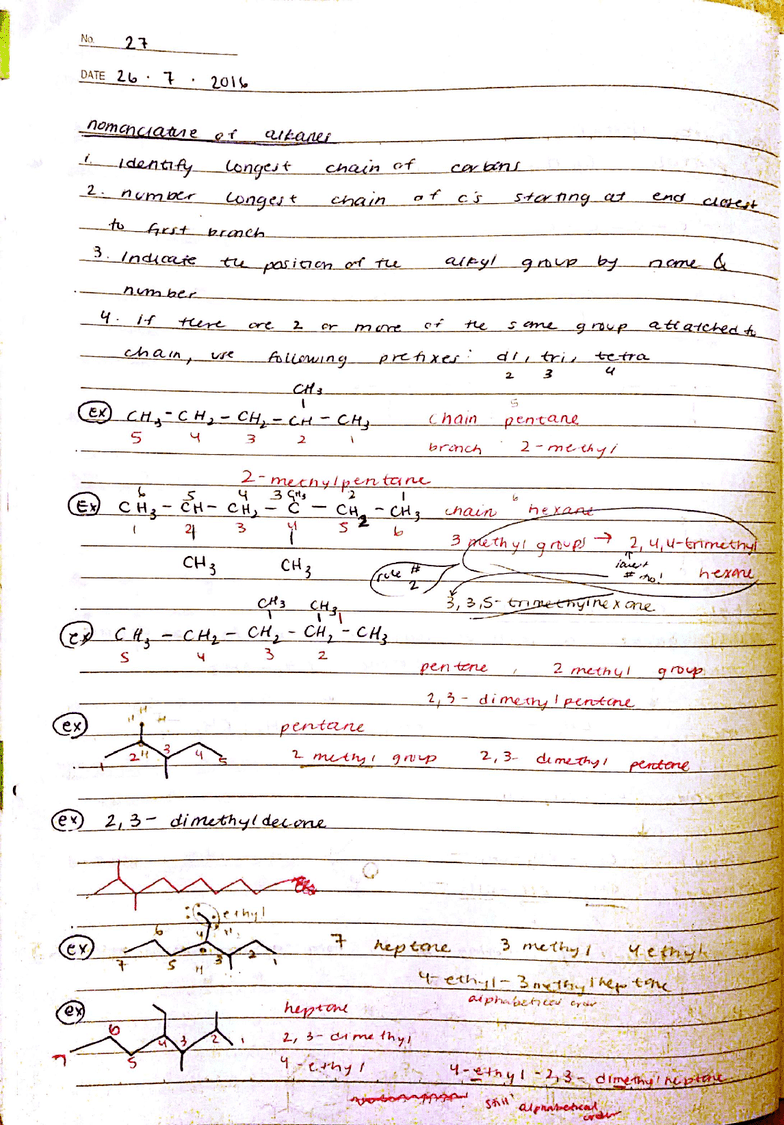 No. 27
DATE 26 · 7 · 2016
nomenclature of alkanes
1. Identify longest chain of carbons
2. number longest chain of c's starting at end closest
to first branch
3. Indicate the position of the alkyl group by name &
number
4. If there are 2 or more of the same group attatched to
chain, use following prefixes: di, tri, tetra
2 3 4
CH3 5
Ex CH3 - CH2 - CH2 - CH - CH3 chain pentane
5 4 3 2 1 branch 2-methyl
2-methylpentane
6 5 4 3 CH3 2 1 6
Ex CH3 - CH - CH2 - C - CH2 - CH3 chain hexane
1 2 3 4 5 6
3 methyl groups → 2,4,4-trimethyl
CH3 CH3 rule # 2 lowest # no! hexane
3,3,5-trimethylhexane
CH3 CH3
ex CH3 - CH2 - CH2 - CH2 - CH3
5 4 3 2 1
pentane, 2 methyl group
2,3-dimethylpentane
H H H
ex pentane
1 2 H 3 4 5 2 methyl group 2,3-dimethyl pentane
ex 2,3-dimethyldecane
ethyl
ex 7 6 5 4 3 2 1 H H 7 heptane 3 methyl 4 ethyl
4-ethyl-3methylheptane
alphabetical order
ex heptane
7 6 5 4 3 2 1 2,3-dimethyl
4-ethyl 4-ethyl-2,3-dimethylheptane
still alphabetical order